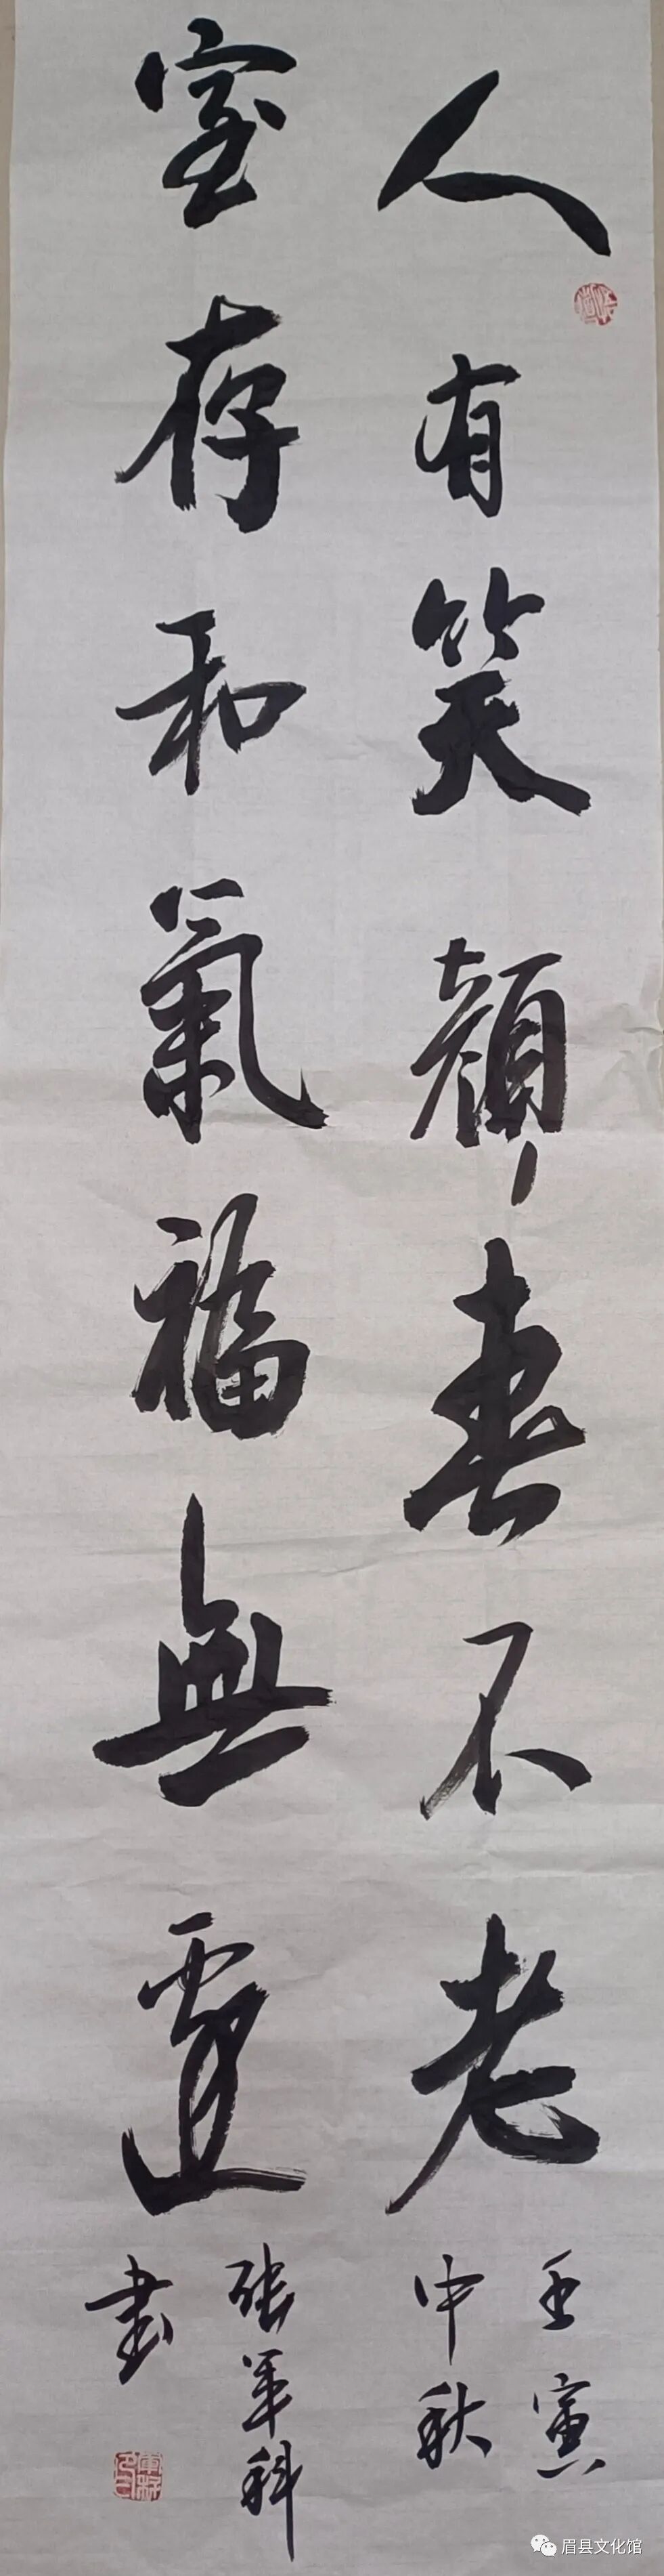 人有笑顏春不老
壬寅
中秋
室存和氣福無邊
張軍科
書
眉县文化馆